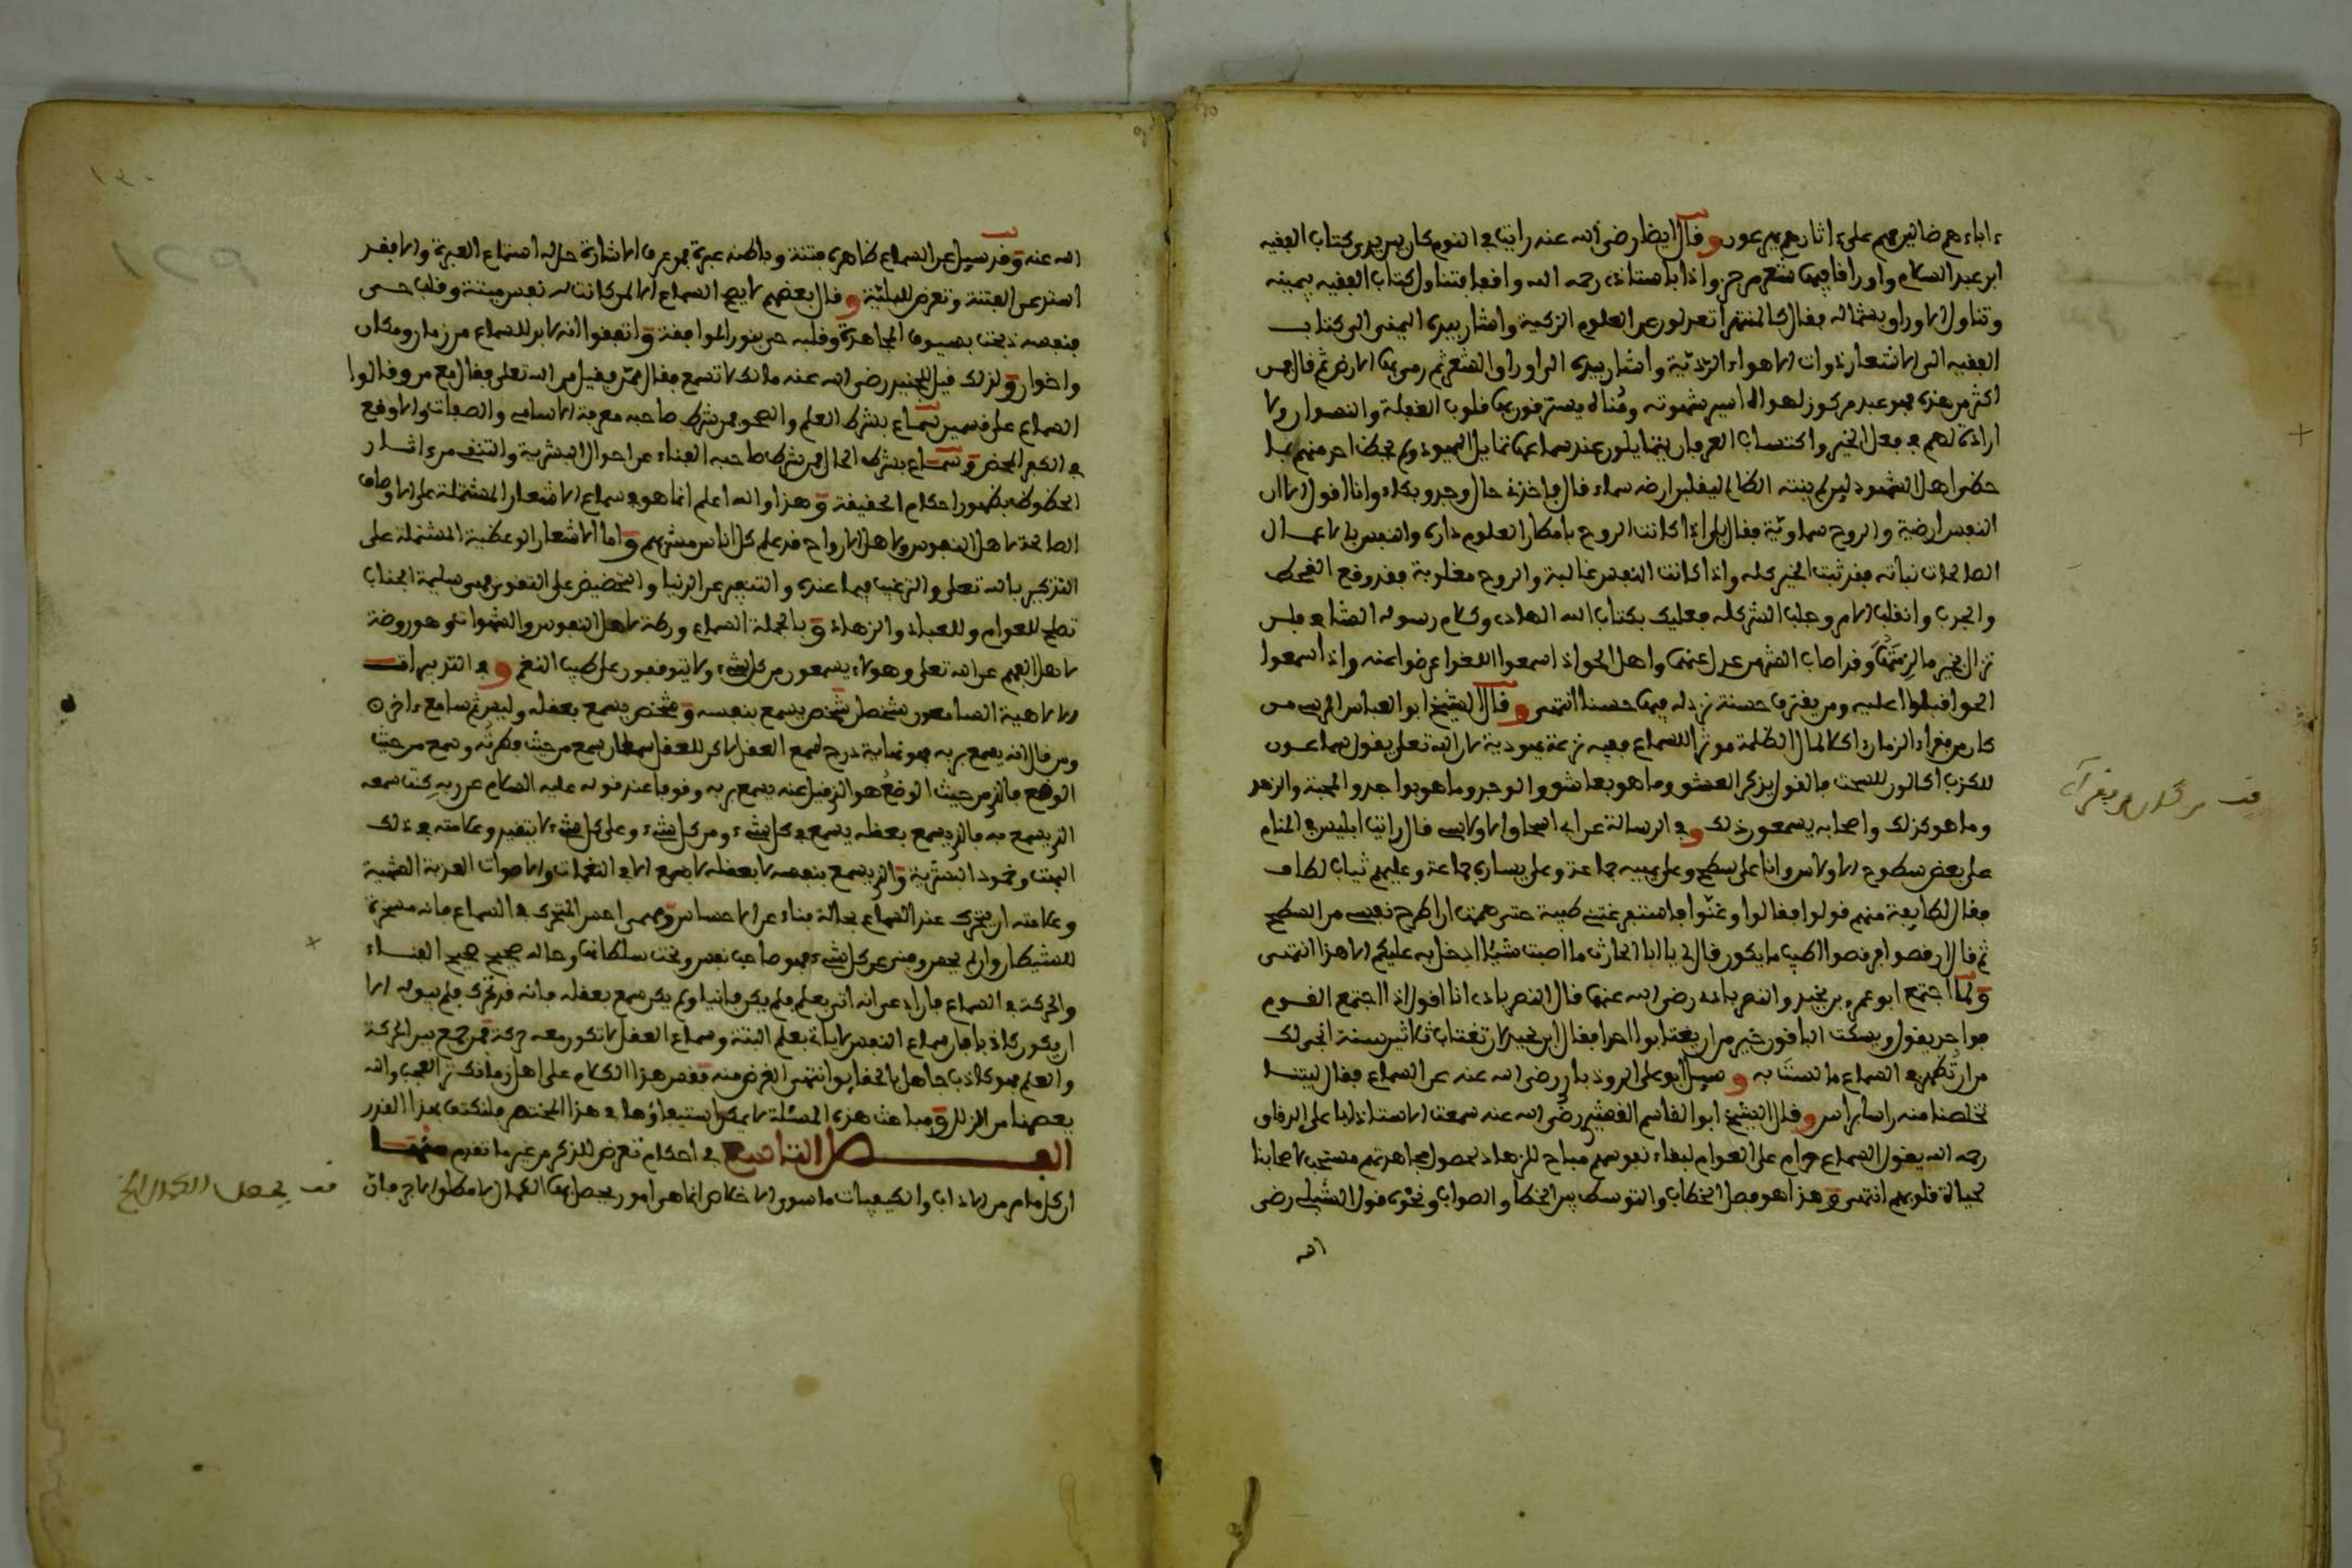 ءاباءهم ضالين فهم على ءاثارهم يهرعون وقال ايضا رضى الله عنه رايت في النوم كان بين يدي كتاب الفقيه
ابن عبد السلام واوراقا فيها شعر مرجز واذا بالاستاذ رحمه الله واقفا فتناول كتاب الفقيه بيمينه
وتناول الاوراق بشماله فقال كالمنتهر اتعدلون عن العلوم الزكية واشار بيده اليمنى الى كتاب
الفقيه الى الاشعار ذوات الاهواء الردية واشار بيده الى اوراق الشعر ثم رمى بها الارض ثم قال فمن
اكثر من هذه فهو عبد مرقوق لهواه اسير شهوته ومناه يسترقون بها قلوب الغفلة والنسوان ولا
ارادة لهم في فعل الخير واكتساب العرفان يتمايلون عند سماعها تمايل اليهود ولم يحظ احد منهم بما
حظى اهل الشهود لين لم ينته الظالم ليقلبن ارضه سماء قال فاخذني حال وجد وبكاء وانا اقول الا ان
النفس ارضية والروح سماوية فقال بلى اذا كانت الروح بامطار العلوم دارة والنفس بالاعمال
الصالحات نباته فقد ثبت الخير كله واذا كانت النفس غالبة والروح مغلوبة فقد وقع القحط
والجدب وانقلب الامر وجلب الشر كله فعليك بكتاب الله الهادى وكلام رسوله الشافي فلن
تزال بخير ما لزمتهما وقد اصاب الشر من عدل عنهما واهل الحق اذا سمعوا اللغو اعرضوا عنه واذا سمعوا
الحق اقبلوا عليه ومن يقترف حسنة نزد له فيها حسنا انتهى وقال الشيخ ابو العباس المرسي من
كان من فقراء الزمان ءاكلا لمال الظلمة موثرا للسماع ففيه نزعة يهودية لان الله تعلى يقول سماعون
للكذب اكالون للسحت فالقول يذكر العشق وما هو بعاشق والوجد وما هو بواجد والمحبة والزهد
وما هو كذلك واصحابه يسمعون ذلك وفي الرسالة عن ابي اسحاق الاولاسي قال رايت ابليس في المنام
على بعض سطوح الاولاس وانا على سطح وعلى يمينه جماعة وعلى يساره جماعة وعليهم ثياب لطاف
فقال لطايفة منهم قولوا فقالوا وغنوا فاستفرغني طيبه حتى هممت ان اطرح نفسي من السطح
ثم قال ارقصوا فرقصوا اطيب ما يكون ثم قال لي يا ابا الحارث ما اصبت شيئا ادخل به عليكم الا هذا انتهى
ولما اجتمع ابو عمرو بن نجيد والنصرباذي رضى الله عنهما قال النصرباذى انا اقول اذا اجتمع القوم
فواحد يقول ويسكت الباقون خير من ان يغتابوا احدا فقال ابن نجيد لان تغتاب ثلاثين سنة انجى لك
من ان تظهر في السماع ما لست به وسيل ابو على الروذباري رضى الله عنه عن السماع فقال ليتنا
تخلصنا منه راسا براس وقال الشيخ ابو القاسم القشيري رضى الله عنه سمعت الاستاذ ابا على الدقاق
رحمه الله يقول السماع حرام على العوام لبقاء نفوسهم مباح للزهاد لحصول مجاهدتهم مستحب لاصحابنا
لحياة قلوبهم انتهى وهذا هو فصل الخطاب والتوسط بين الخطا والصواب ونحوه قول الشبلى رضى
الله
الله عنه وقد سيل عن السماع ظاهره فتنة وباطنه عبرة فمن عرف الاشارة حل له استماع العبرة والا فقد
استدعى الفتنة وتعرض للبلية وقال بعضهم لا يصح السماع الا لمن كانت له نفس ميتة وقلب حي
فنفسه ذبحت بسيوف المجاهدة وقلبه حي بنور الموافقة واتفقوا انه لا بد للسماع من زمان ومكان
واخوان ولذلك قيل للجنيد رضى الله عنه مالك لا تسمع فقال ممن فقيل من الله تعلى فقال مع من وقالوا
السماع على قسمين سماع بشرط العلم والصحو فمن شرط صاحبه معرفة الاسامى والصفات والا وقع
في الكفر المحض وسماع بشرط الحال فمن شرط صاحبه الفناء عن احوال البشرية والتنقى من ءاثار
الحظوظ بظهور احكام الحقيقة وهذا والله اعلم انما هو في سماع الاشعار المشتملة على الاوصاف
الصالحة لاهل النفوس ولاهل الارواح قد علم كل اناس مشربهم واما الاشعار الوعظية المشتملة على
التذكير بالله تعلى والترغيب فيما عنده والتنفير عن الدنيا والتحضيض على التقوى فهى سليمة الجناب
تصلح للعوام وللعباد والزهاد وبالجملة السماع ورطة لاهل النفوس والشهوات وهو روضة
لاهل الفهم عن الله تعلى وهؤلاء يسمعون من كل شيء ولا يتوقفون على طيب النغم وفي التدبيرات
الالاهية السامعون شخصان شخص يسمع بنفسه وشخص يسمع بعقله وليس ثم سامع ءاخر
ومن قال انه يسمع بربه فهو نهاية درج سمع العقل لان للعقل سمعان سمع من حيث فطرته وسمع من حيث
الوضع فالذي من حيث الوضع هو الذي قيل عنه يسمع بربه وقوفا عند قوله عليه السلام عن ربه كنت سمعه
الذي يسمع به فالذي يسمع بعقله يسمع في كل شيء ومن كل شيء وعلى كل شيء لا يتقيد وعلامته في ذلك
البهت وخمود البشرية والذي يسمع بنفسه لا بعقله لا يسمع الا في النغمات والاصوات العذبة الشهية
وعلامته ان يتحرك عند السماع بحالة فناء عن الاحساس ومهما احس المتحرك في السماع فانه مسخرة
للشيطان وان لم يحس وفنى عن كل شيء فهو صاحب نفس وتحت سلطانها وحاله صحيح صحيح الفناء
والحركة في السماع فان ادعى انه اتى بعلم فلم يكن فانيا ولم يكن سمع بعقله فانه قد تحرك فلم يبق له الا
ان يكون كاذبا فان سماع النفس لا ياتي بعلم البتة وسماع العقل لا تكون معه حركة فمن جمع بين الحركة
والعلم فهو كاذب جاهل بالحقايق انتهى الغرض منه فقس هذا الكلام على اهل زمانك تر العجب والله
يعصمنا من الزلل ومباحث هذه المسئلة لا يمكن استيفاؤها في هذا المختصر فلنكتف بهذا القدر
الفصل التاسع في احكام تعرض للذكر من غير ما تقدم منها
ان كل ما مر من الاداب والكيفيات ما سوى الاخلاص انما هى امور يحصل بها الكمال لا مطلق الاجر فان
قف يحصل الكمال الخ